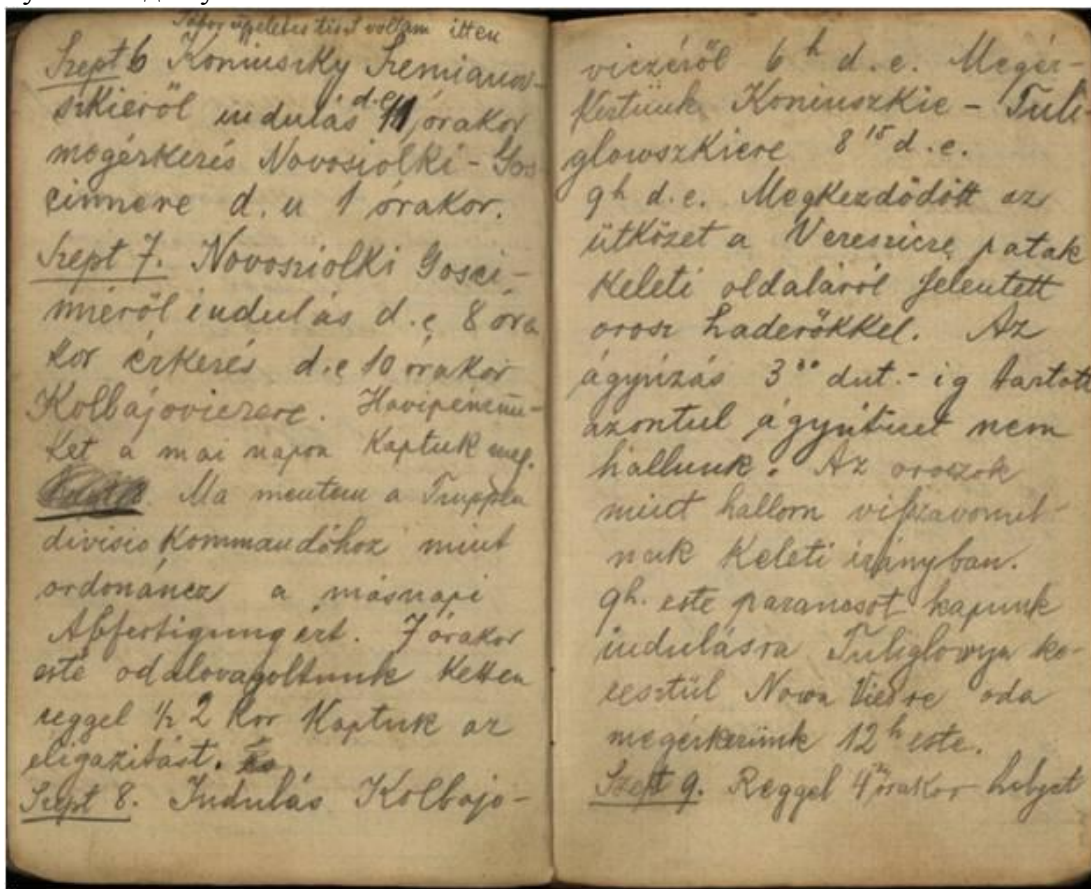 Tábor ügyeletes tiszt voltam itten
Szept 6 Koniuszky Siemianov-
szkieről indulás d.e. 11 órakor
megérkezés Novosiolki - Gos
cinnere d. u 1 órakor.
Szept 7. Novosziolki Gosci-
nieről indulás d.e 8 óra
kor érkezés d.e 10 órakor
Kolbajoviczere. Havipénzün-
ket a mai napon kaptuk meg.
Ma mentem a Truppen
divisio Kommandóhoz mint
ordonáncz a másnapi
Abfertigungért. 7 órakor
este odalovagoltunk ketten
reggel 1/2 2 kor kaptuk az
eligazitást.
Szept 8. Indulás Kolbajo-
viczéről 6 h d. e. Megér-
keztünk Koniuszkie - Tuli
glowszkiere 8 15 d. e.
9h d. e. Megkezdödött az
ütközet a Vereszicze patak
keleti oldaláról jelentett
orosz haderőkkel. Az
ágyúzás 3 00 dut. - ig tartott
azontul ágyútüzet nem
hallunk. Az oroszok
mint hallom viszavonul-
nak keleti irányban.
9h. este parancsot kapunk
indulásra Tuliglowyn ke-
resztül Nowa Viesre oda
megérkezünk 12 h este.
Szept 9. Reggel 4 órakor helyet